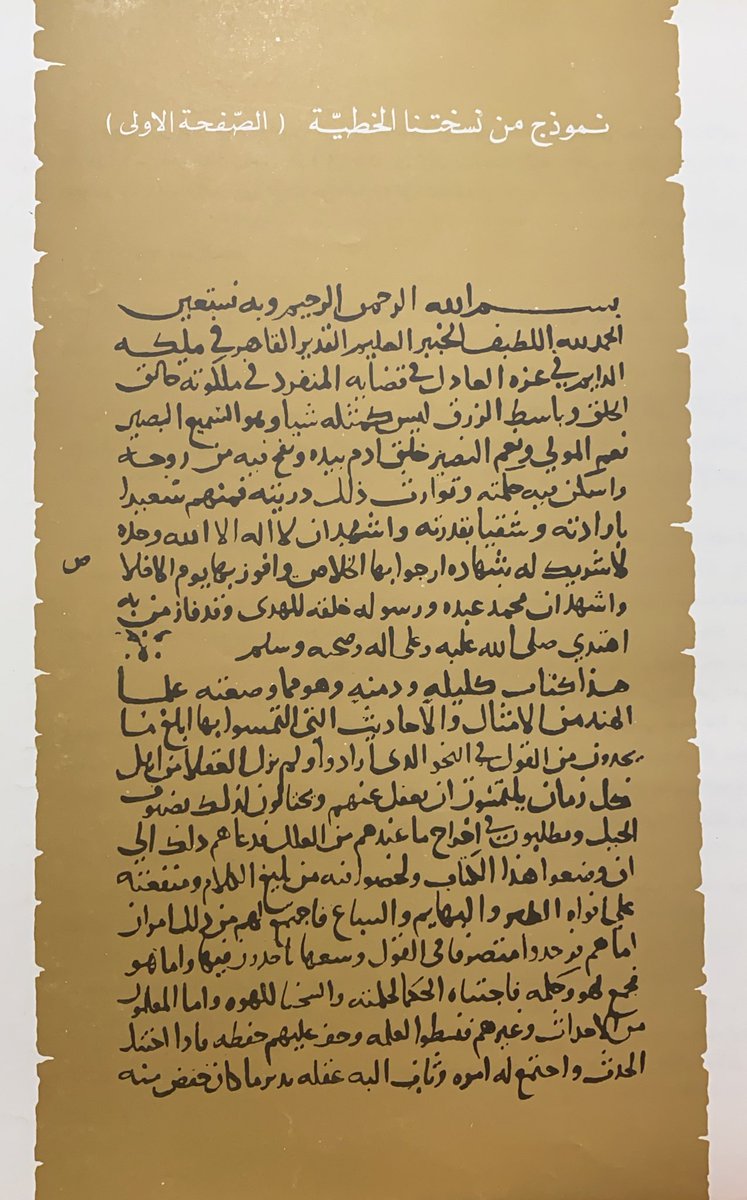 نموذج من نسختنا الخطيّة ( الصّفحة الاولى )
بسم الله الرحمن الرحيم وبه نستعين
الحمد لله اللطيف الخبير العليم القدير القاهر في ملكه
الدايم في عزه العادل في قضايه المنفرد في ملكوته خالق
الخلق وباسط الرزق ليس كمثله شيا وهو السميع البصير
نعم المولي ونعم النصير خلق ادم بيده ونفخ فيه من روحه
واسكن فيه حكمته وتوارث ذلك دريته فمنهم سعيدا
بارادته وشقيا بقدرته واشهد ان لا اله الا الله وحده
لا شريك له شهاده ارجوا بها الخلاص وافوز بها يوم
ص
واشهد ان محمد عبده ورسوله خلقه للهدى وقد فاز من به
اهتدي صلى الله عليه وعلى اله وصحبه وسلم
هذا كتاب كليله ودمنه وهو مما وضعته علما
الهند من الامثال والاحاديث التى التمسوا بها ابلغ ما
يجدون من القول في النحو الدى ارادوا ولم يزل العقلا من اهل
كل زمان يلتمسون ان يعقل عنهم ويحتالون لذلك بصنوف
الحيل ويطلبون في اخراج ما عندهم من العلل فدعاهم ذلك الي
ان وضعوا هذا الكتاب ولخصوا فيه من بليغ الكلام ومتقنه
على افواه الطير والبهايم والسباع فاجتمع لهم من ذلك امران
اما هم فوجدوا متصرفا في القول وسعها ياخدون فيها واما هو
فجمع لهو وحكمه فاجتباه الحكما لحكمته والسخفا للهوه واما المتعلمون
من الاحداث وغيرهم فنشطوا لعلمه وخف عليهم حفظه فادا احتنك
الحدث واجتمع له امره وثاب اليه عقله بدبر ما كان حفض منه